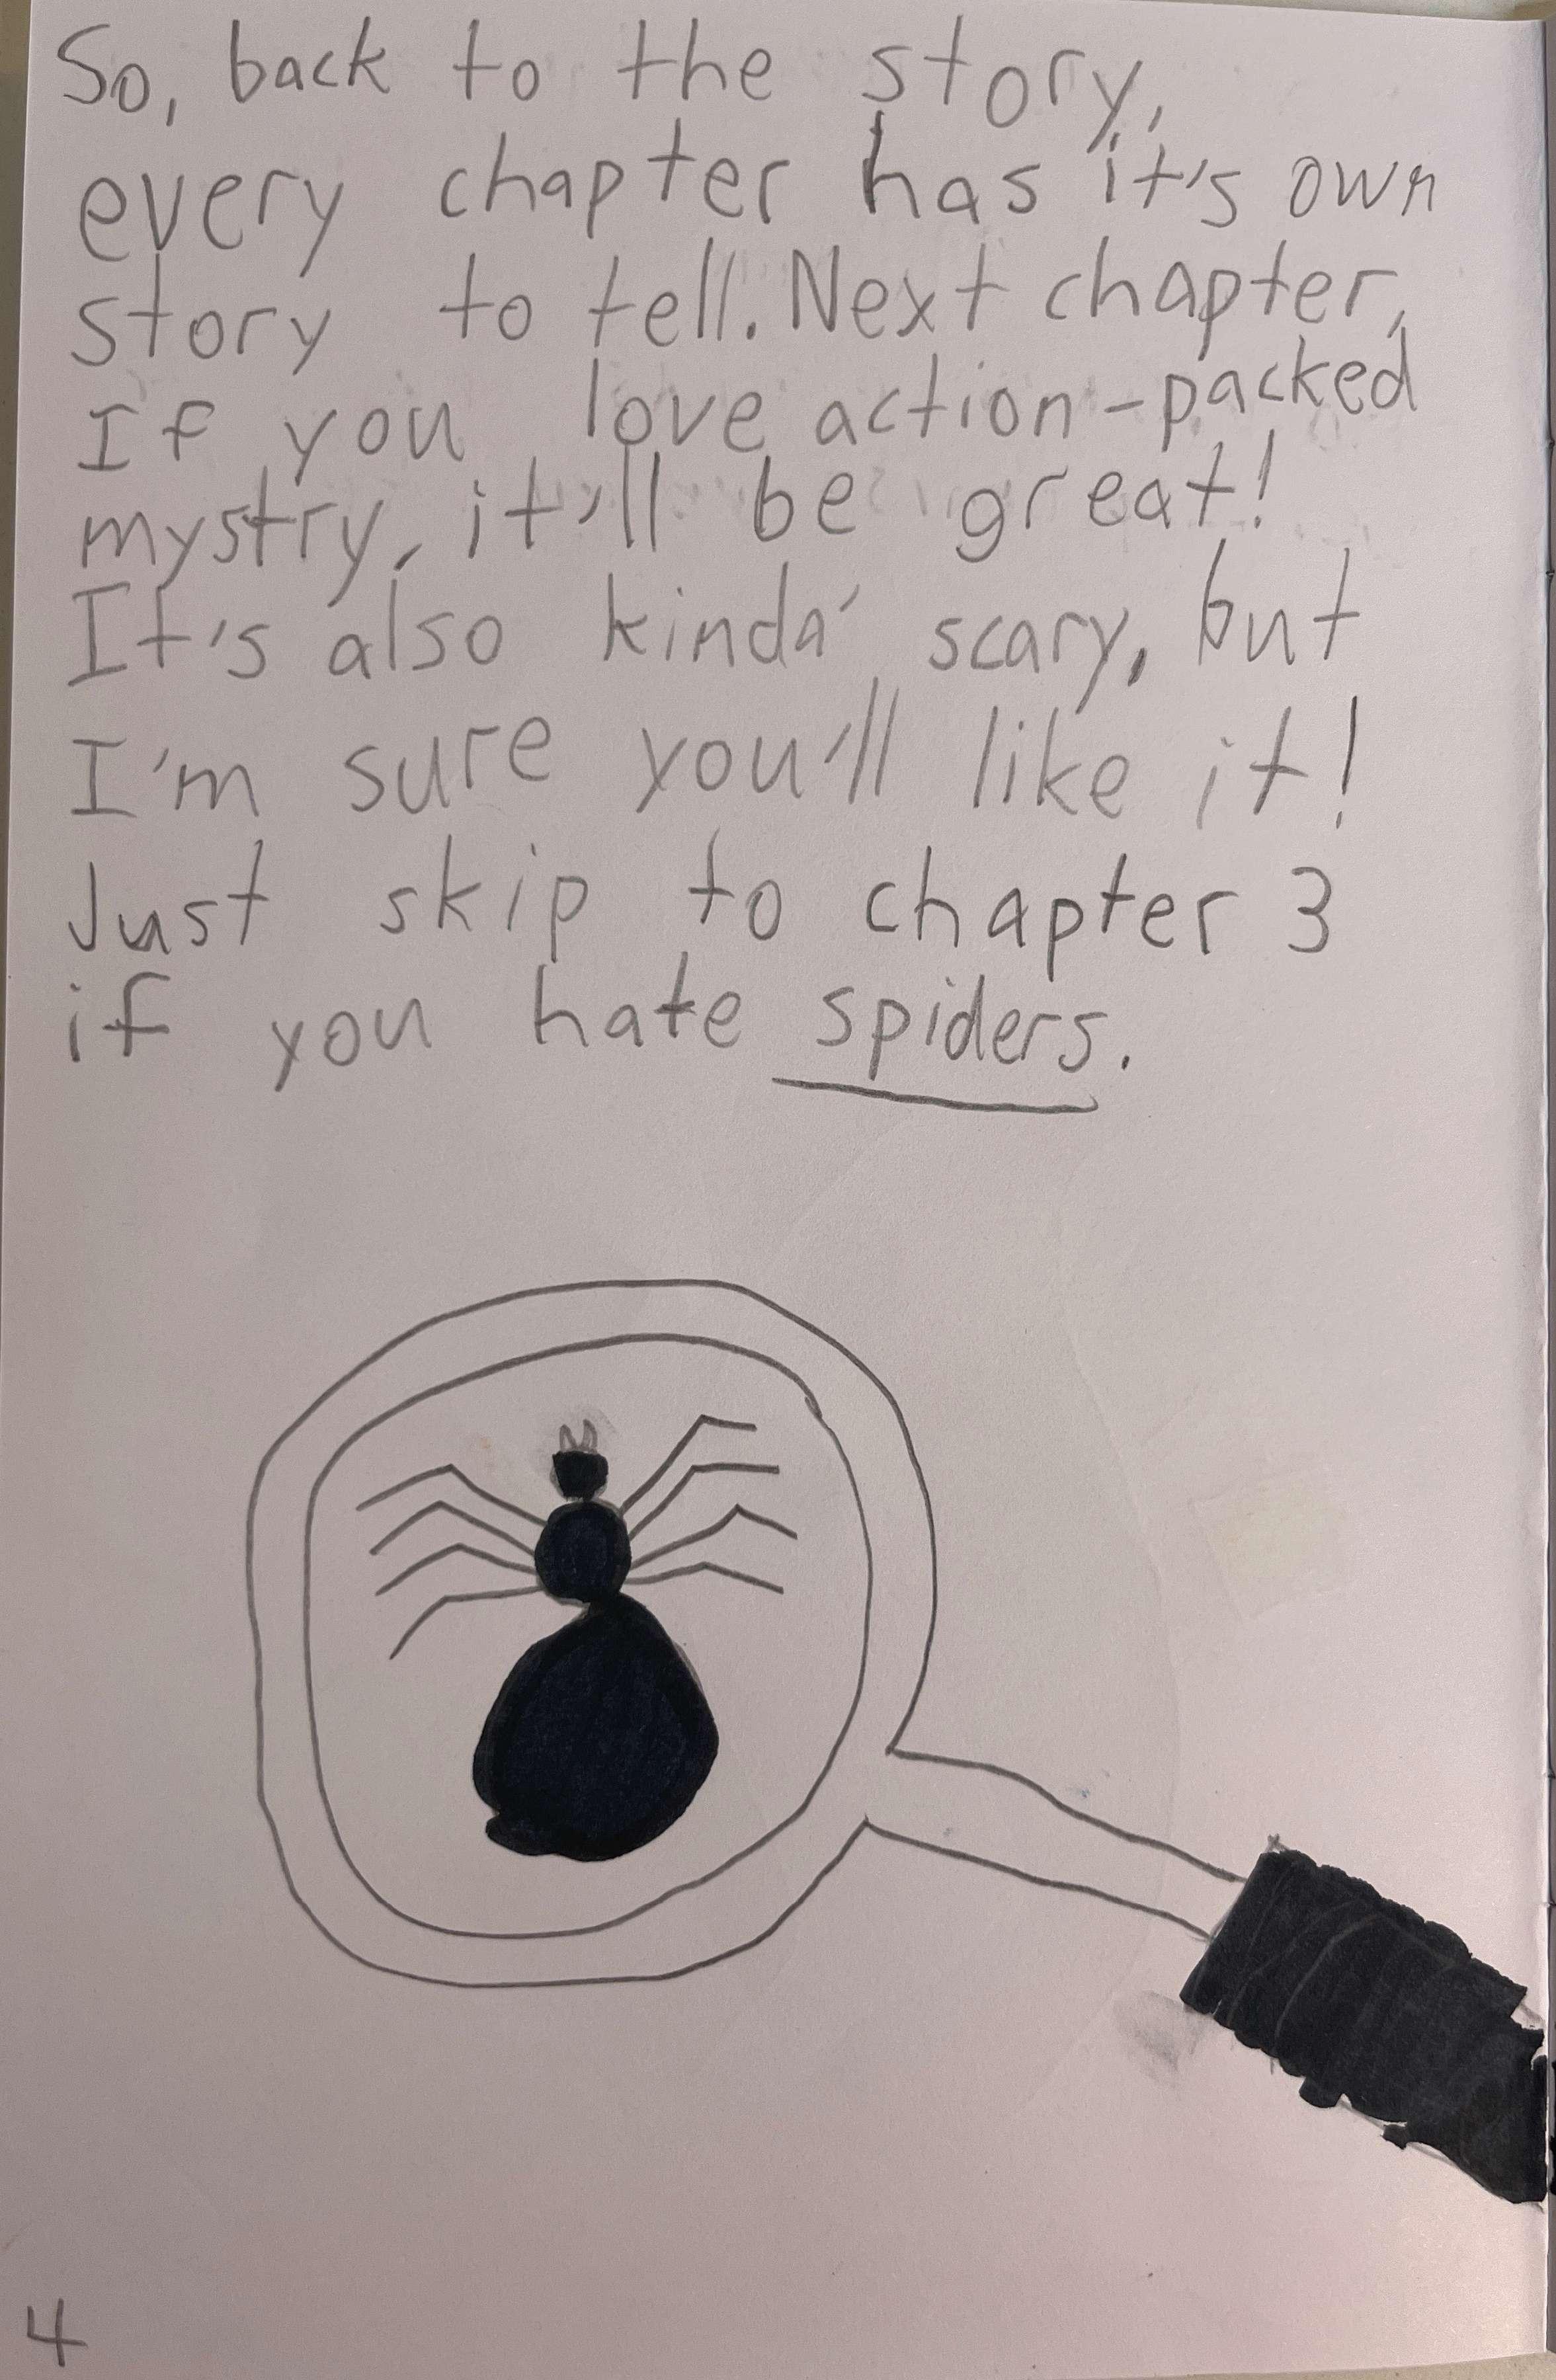 So, back to the story,
every chapter has it's own
story to tell. Next chapter,
If you love action-packed
mystry, it'll be great!
It's also kinda' scary, but
I'm sure you'll like it!
Just skip to chapter 3
if you hate spiders.
4